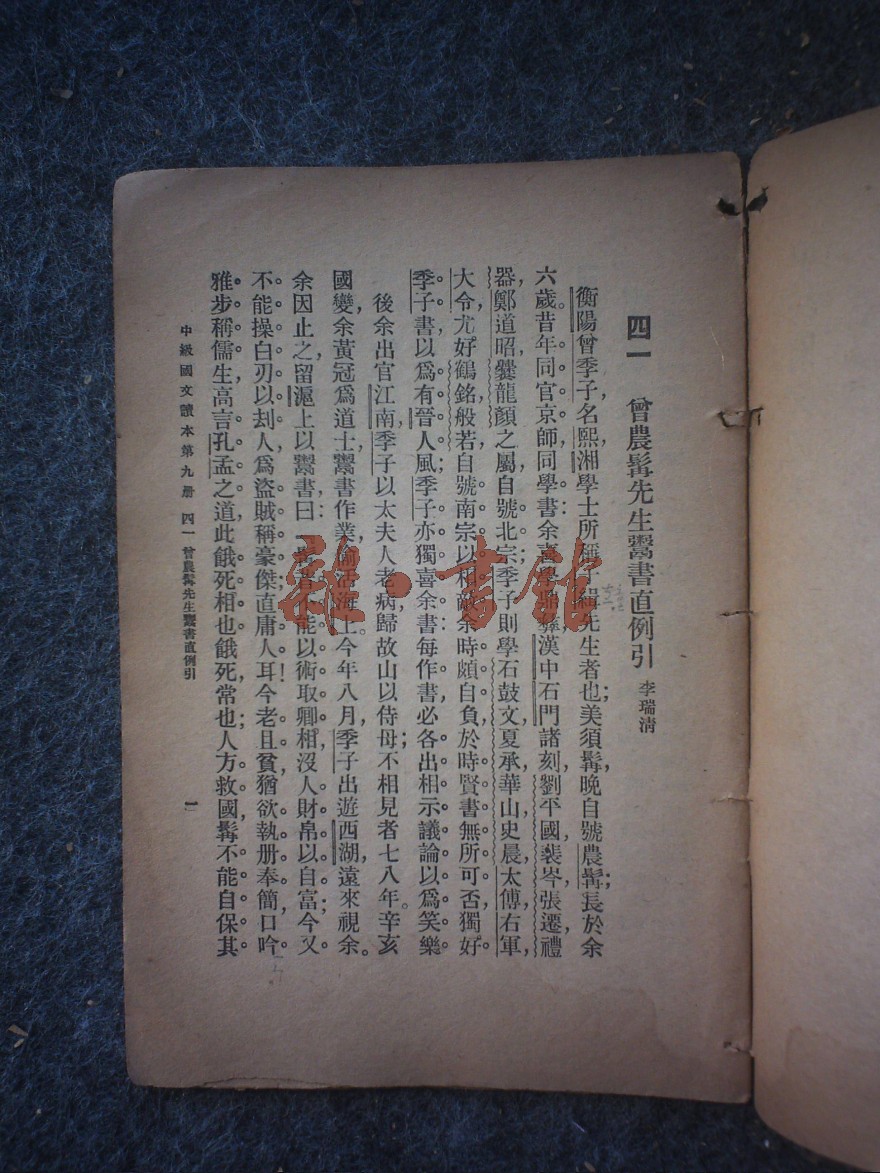 四一　曾農髯先生鬻書直例引　李瑞清
衡陽曾季子，名熙，湘學士所稱子緝先生者也；美須髯，晚自號農髯；長於余
六歲。昔年同官京師，同學書：余喜學鼎彝，漢中石門諸刻，劉平國，裴岑，張遷，禮
器，鄭道昭，爨龍顏之屬，自號北宗；季子則學石鼓文，夏承，華山，史晨，太傅，右軍，
大令，尤好鶴銘，般若，自號南宗以相敵。余時頗自負，於時賢書無所可否，獨好
季子書，以爲有晉人風；季子亦獨喜余書：每作書必各出相示，議論以爲笑樂。
後余出官江南，季子以太夫人老病，歸故山以侍母；不相見者七八年。辛亥
國變，余黃冠爲道士，鬻書作業，偷活海上。今年八月，季子出遊西湖，遠來視余。
余因止之留滬上以鬻書曰：髯者不能以術取卿相，沒人財帛以自富；今又
不能操白刃以刦人爲盜賊，稱豪傑，直庸人耳！今老且貧，猶欲執册奉簡，口吟
雅步，稱儒生，高言孔孟之道，此餓死相也；餓死，常也；人方救國，髯不能自保其
中級國文讀本第九册　四一曾農髯先生鬻書直例引　一
雜·書館